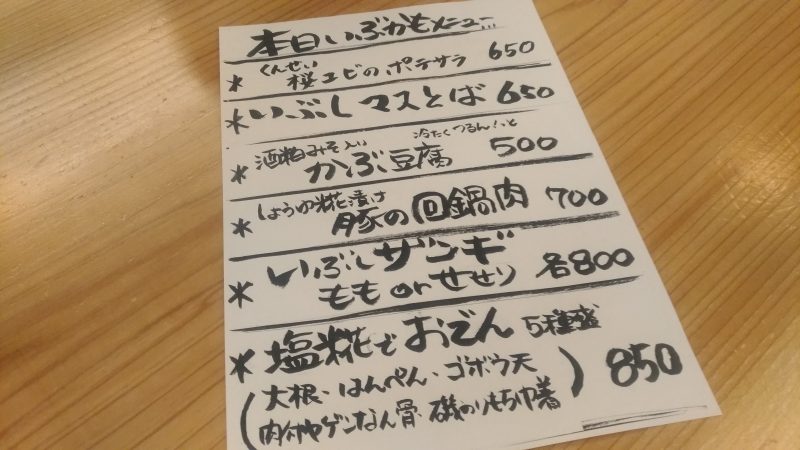 本日いぶかもメニュー…
＊ くんせい
桜エビのポテサラ 650
＊ いぶしマスとば 650
酒粕みそ入り 冷たくつるん！っと
＊ かぶ豆腐 500
しょうゆ糀漬け
＊ 豚の回鍋肉 700
＊ いぶしザンギ
ももorせせり 各800
＊ 塩糀でおでん 5種盛
(大根・はんぺん・ゴボウ天
肉付ヤゲンなん骨・磯のりもち巾着) 850